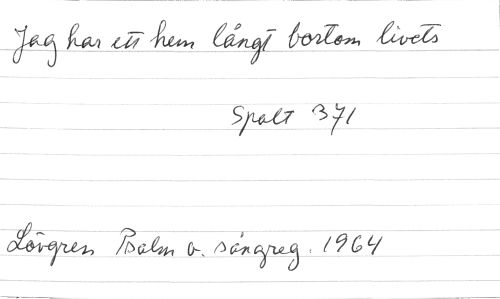 Jag har ett hem långt bortom livets
Spalt 371
Lövgren Psalm o. sångreg. 1964